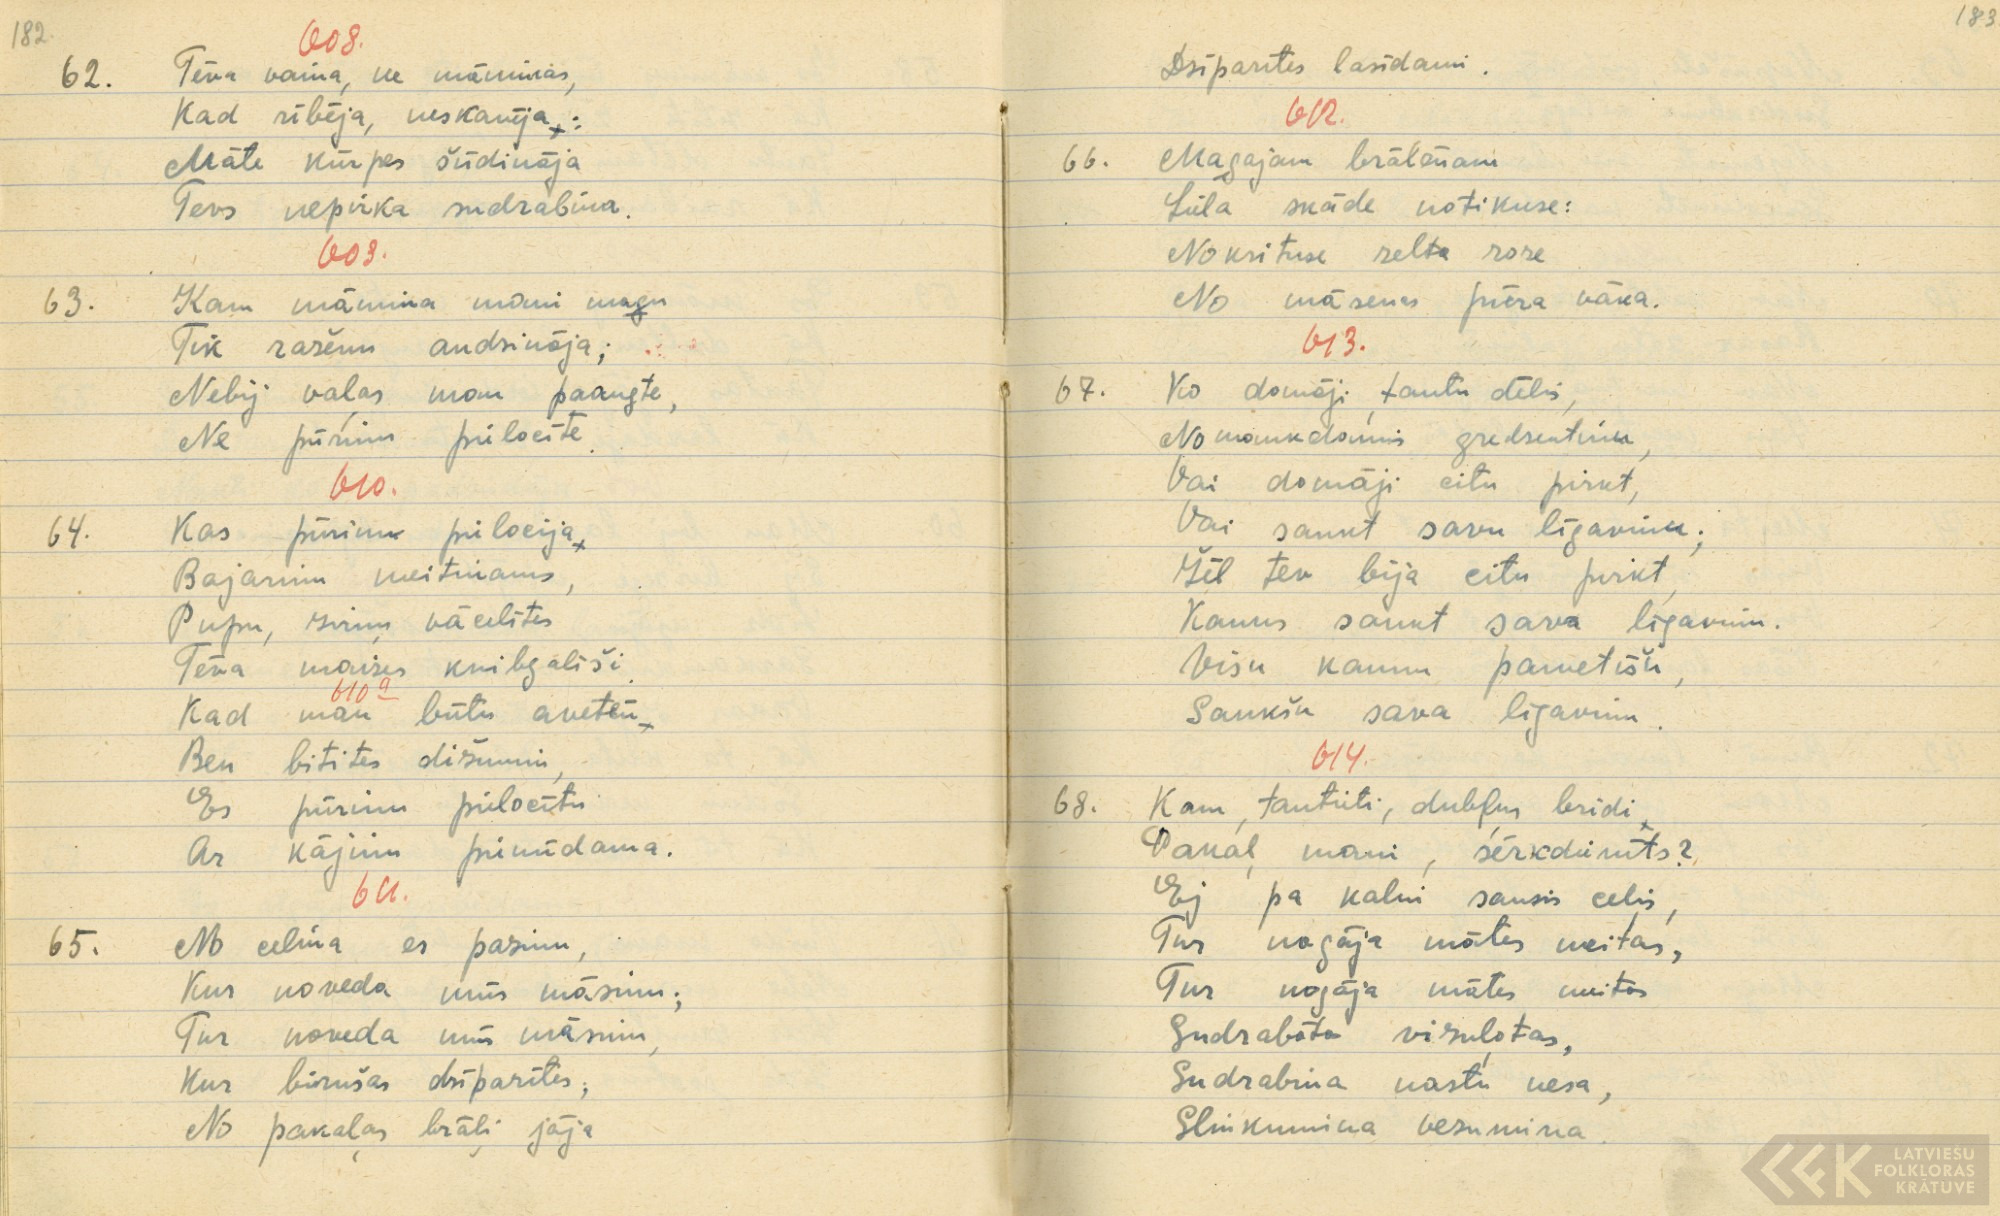 182.
608.
62. Tēva vaina, ne māmiņas,
Kad rībēja, neskanēja:
Māte kurpes šūdināja
Tevs nepirka sudrabiņa.
609.
63. Kam māmiņa mani mazu
Tik raženu audzināja;
Nebij vaļas man paaugte,
Ne pūriņu pielocīte.
610.
64. Kas pūriņu pielocīja
Bajariņu meitiņams,
Pupu, zirņu vācelītes
Tēva maizes knibgalīši.
610a
Kad man būtu avetēn
Ben bitītes dižumiņ,
Es pūriņu pielocītu
Ar kājiņu piemīdama.
611.
65. No celiņa es paziņu,
Kur noveda mūs māsiņu;
Tur noveda mūs māsiņu,
Kur birušas dzīparītes;
No pakaļas brāļi jāja
183
Dzīparītes lasīdami.
612.
66. Mazajam brālēnam
Liela skāde notikuse:
Nokrituse zelta roze
No māsenas pūra vāka.
613.
67. Ko domāji, tautu dēlis,
Nomaukdamis gredzentiņu,
Vai domāji citu pirkt,
Vai saukt savu līgaviņu;
Žēl tev bija citu pirkt,
Kauns saukt sava līgaviņ.
Visu kaunu pametišu,
Saukšu sava līgaviņu.
614.
68. Kam, tautieti, dubļus bridi
Pakaļ mani, sērkdienīts?
Ej pa kalni sausis celis,
Tur nogāja mātes meitas,
Tur nogāja mātes meitas
Sudrabōta vizuļotas,
Sudrabiņa nastu nesa,
Slinkumiņa vezumiņa.
LATVIEŠU
FOLKLORAS
KRĀTUVE